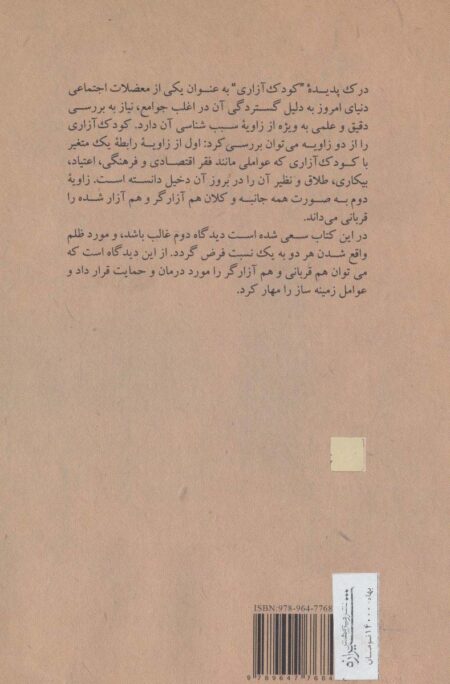 درک پدیدهٔ "کودک‌آزاری" به عنوان یکی از معضلات اجتماعی
دنیای امروز به دلیل گستردگی آن در اغلب جوامع، نیاز به بررسی
دقیق و علمی به ویژه از زاویهٔ سبب شناسی آن دارد. کودک‌آزاری
را از دو زاویه می‌توان بررسی کرد: اول از زاویهٔ رابطهٔ یک متغیر
با کودک‌آزاری که عواملی مانند فقر اقتصادی و فرهنگی، اعتیاد،
بیکاری، طلاق و نظیر آن را در بروز آن دخیل دانسته است. زاویهٔ
دوم به صورت همه جانبه و کلان هم آزارگر و هم آزار شده را
قربانی می‌داند.
در این کتاب سعی شده است دیدگاه دوم غالب باشد، و مورد ظلم
واقع شدن هر دو به یک نسبت فرض گردد. از این دیدگاه است که
می توان هم قربانی و هم آزارگر را مورد درمان و حمایت قرار داد و
عوامل زمینه ساز را مهار کرد.
ISBN: 978-964-7768
9 789647 7684
شیرازه
بهاء: ۱۴۰۰۰ تومان